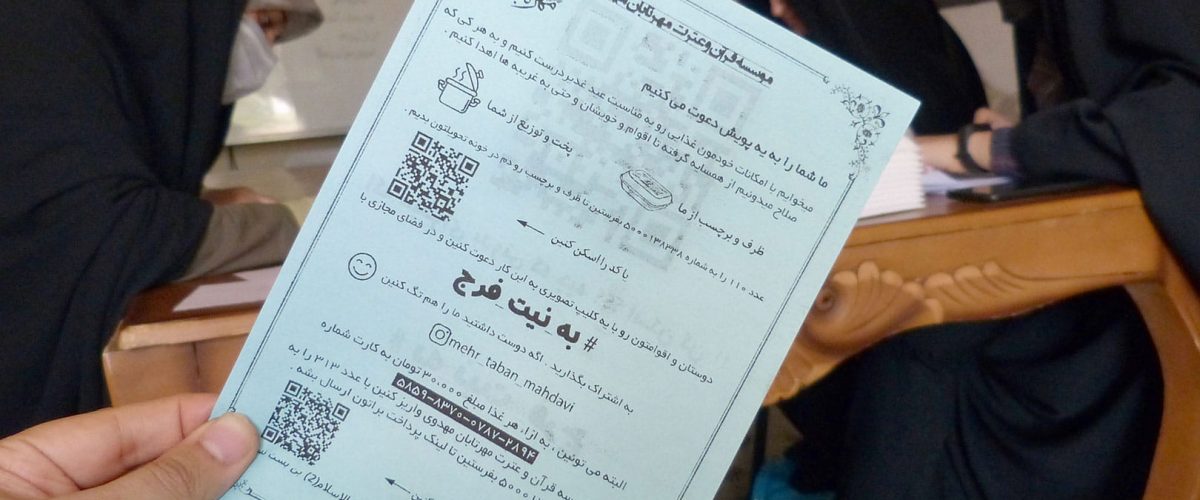 موسسه قرآن و عترت مهرتابان
ما شما را به یه پویش دعوت می‌کنیم
میخوایم با امکانات خودمون غذایی رو به مناسبت عید غدیر درست کنیم و به هر کی که
صلاح میدونیم از همسایه گرفته تا اقوام و خویشان و حتی به غریبه ها اهدا کنیم .
پخت و توزیع از شما
ظرف و برچسب از ما
عدد ۱۱۰ را به شماره ۵۰۰۰۱۳۸۳۳۸ بفرستین تا ظرف و برچسب رو دم در خونه تحویلتون بدیم .
یا کد را اسکن کنین
دوستان و اقوامتون رو با یه کلیپ تصویری به این کار دعوت کنین و در فضای مجازی با
# به_نیت_فرج
به اشتراک بگذارید . اگه دوست داشتید ما را هم تگ کنین
mehr_taban_mahdavi
البته می تونین ، به ازاء هر غذا مبلغ ۳۰.۰۰۰ تومان به کارت شماره
۵۸۵۹-۸۳۷۰-۰۷۸۷-۲۸۹۴
قرآن و عترت مهرتابان مهدوی واریز کنین یا عدد ۳۱۳ را به
بفرستین تا لینک پرداخت براتون ارسال بشه .